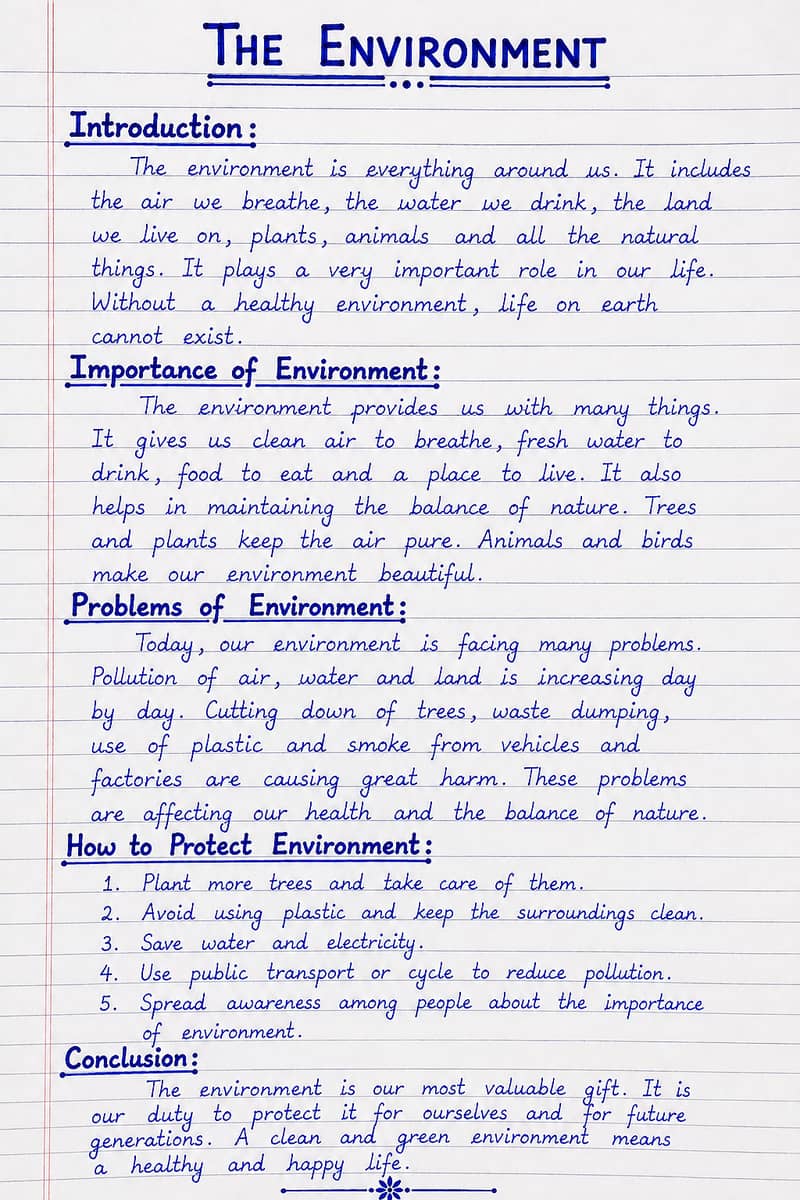 THE ENVIRONMENT
Introduction:
The environment is everything around us. It includes
the air we breathe, the water we drink, the land
we live on, plants, animals and all the natural
things. It plays a very important role in our life.
Without a healthy environment, life on earth
cannot exist.
Importance of Environment:
The environment provides us with many things.
It gives us clean air to breathe, fresh water to
drink, food to eat and a place to live. It also
helps in maintaining the balance of nature. Trees
and plants keep the air pure. Animals and birds
make our environment beautiful.
Problems of Environment:
Today, our environment is facing many problems.
Pollution of air, water and land is increasing day
by day. Cutting down of trees, waste dumping,
use of plastic and smoke from vehicles and
factories are causing great harm. These problems
are affecting our health and the balance of nature.
How to Protect Environment:
1. Plant more trees and take care of them.
2. Avoid using plastic and keep the surroundings clean.
3. Save water and electricity.
4. Use public transport or cycle to reduce pollution.
5. Spread awareness among people about the importance
of environment.
Conclusion:
The environment is our most valuable gift. It is
our duty to protect it for ourselves and for future
generations. A clean and green environment means
a healthy and happy life.